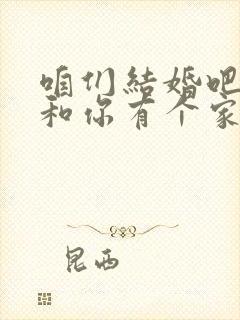 咱们結婚吧
和你有个家
昆西